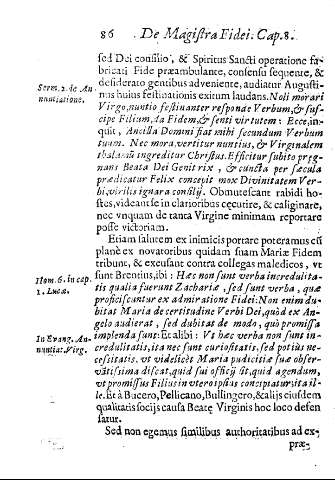 86 De Magistra Fidei. Cap. 8.
sed Dei consilio, & Spiritus Sancti operatione fa-
bricati Fide præambulante, consensu sequente, &
desiderato gentibus adveniente, audiatur Augusti-
Serm. 2. de An-
nuntiatione.
nus huius festinationis exitum laudans. Noli morari
Virgo, nuntio festinanter responde Verbum, & sus-
cipe Filium, da Fidem, & senti virtutem: Ecce, in-
quit, Ancilla Domini fiat mihi secundum Verbum
tuum. Nec mora, vertitur nuntius, & Virginalem
thalamũ ingreditur Christus. Efficitur subito præg-
nans Beata Dei Genitrix, & cuncta per sæcula
prædicatur Felix concepit mox Divinitatem Ver-
bi, virilis ignara consilij. Obmutescant rabidi ho-
stes, videant se in clarioribus cęcutire, & caliginare,
nec vnquam de tanta Virgine minimam reportare
posse victoriam.
Etiam salutem ex inimicis portare poteramus cũ
planè ex novatoribus quidam suam Mariæ Fidem
tribunt, & excusant contra collegas maledicos, vt
Hom. 6. in cap.
1. Lucæ.
sunt Brentius, ibi: Hæc non sunt verba incredulita-
tis qualia fuerunt Zachariæ, sed sunt verba, quæ
proficiscuntur ex admiratione Fidei: Non enim du-
bitat Maria de certitudine Verbi Dei, quòd ex An-
gelo audierat, sed dubitat de modo, quò promissa
In Evang. An-
nuntiat. Virg.
implenda sunt: Et alibi: Vt hæc verba non sunt in-
credulitatis, ita nec sunt curiositatis, sed potiùs ne-
cessitatis, vt videlicèt Maria pudicitiæ suæ obser-
vãtissima discat, quid sui officij sit, quid agendum,
vt promissus Filius in vtero ipsius concipiatur, ita il-
le. Et à Bucero, Pellicano, Bullingero, & alijs eiusdem
qualitatis socijs causa Beatę Virginis hoc loco defen
satur.
Sed non egemus similibus authoritatibus ad ex-
præ-